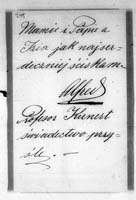 Mamie i Papu a
Izia jak najser-
deczniej ściskam.
Alfred
Profesor Kunert
świadectwo przy-
śle.